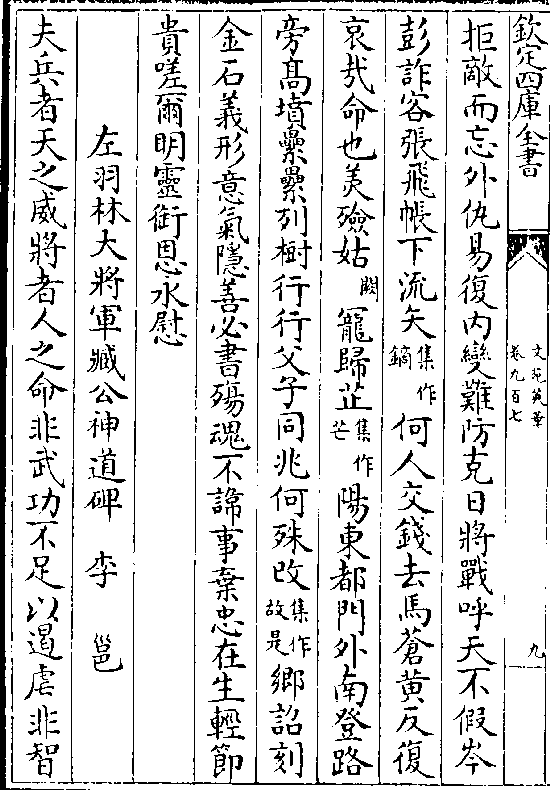 欽定四庫全書
文苑英華
卷九百七
九
拒敵而忘外仇易復内變難防克日將戰呼天不假岑
彭詐客張飛帳下流矢集作鏑何人交錢去馬蒼黄反復
哀哉命也美殮姑闕寵歸芷集作芒陽東都門外南登路
旁髙墳纍纍列樹行行父子同兆何殊改集作故是鄉詔刻
金石義形意氣隱善必書殤魂不諦事棄忠在生輕節
貴嗟爾明靈銜恩永慰
左羽林大將軍臧公神道碑 李邕
夫兵者天之威將者人之命非武功不足以遏虐非智